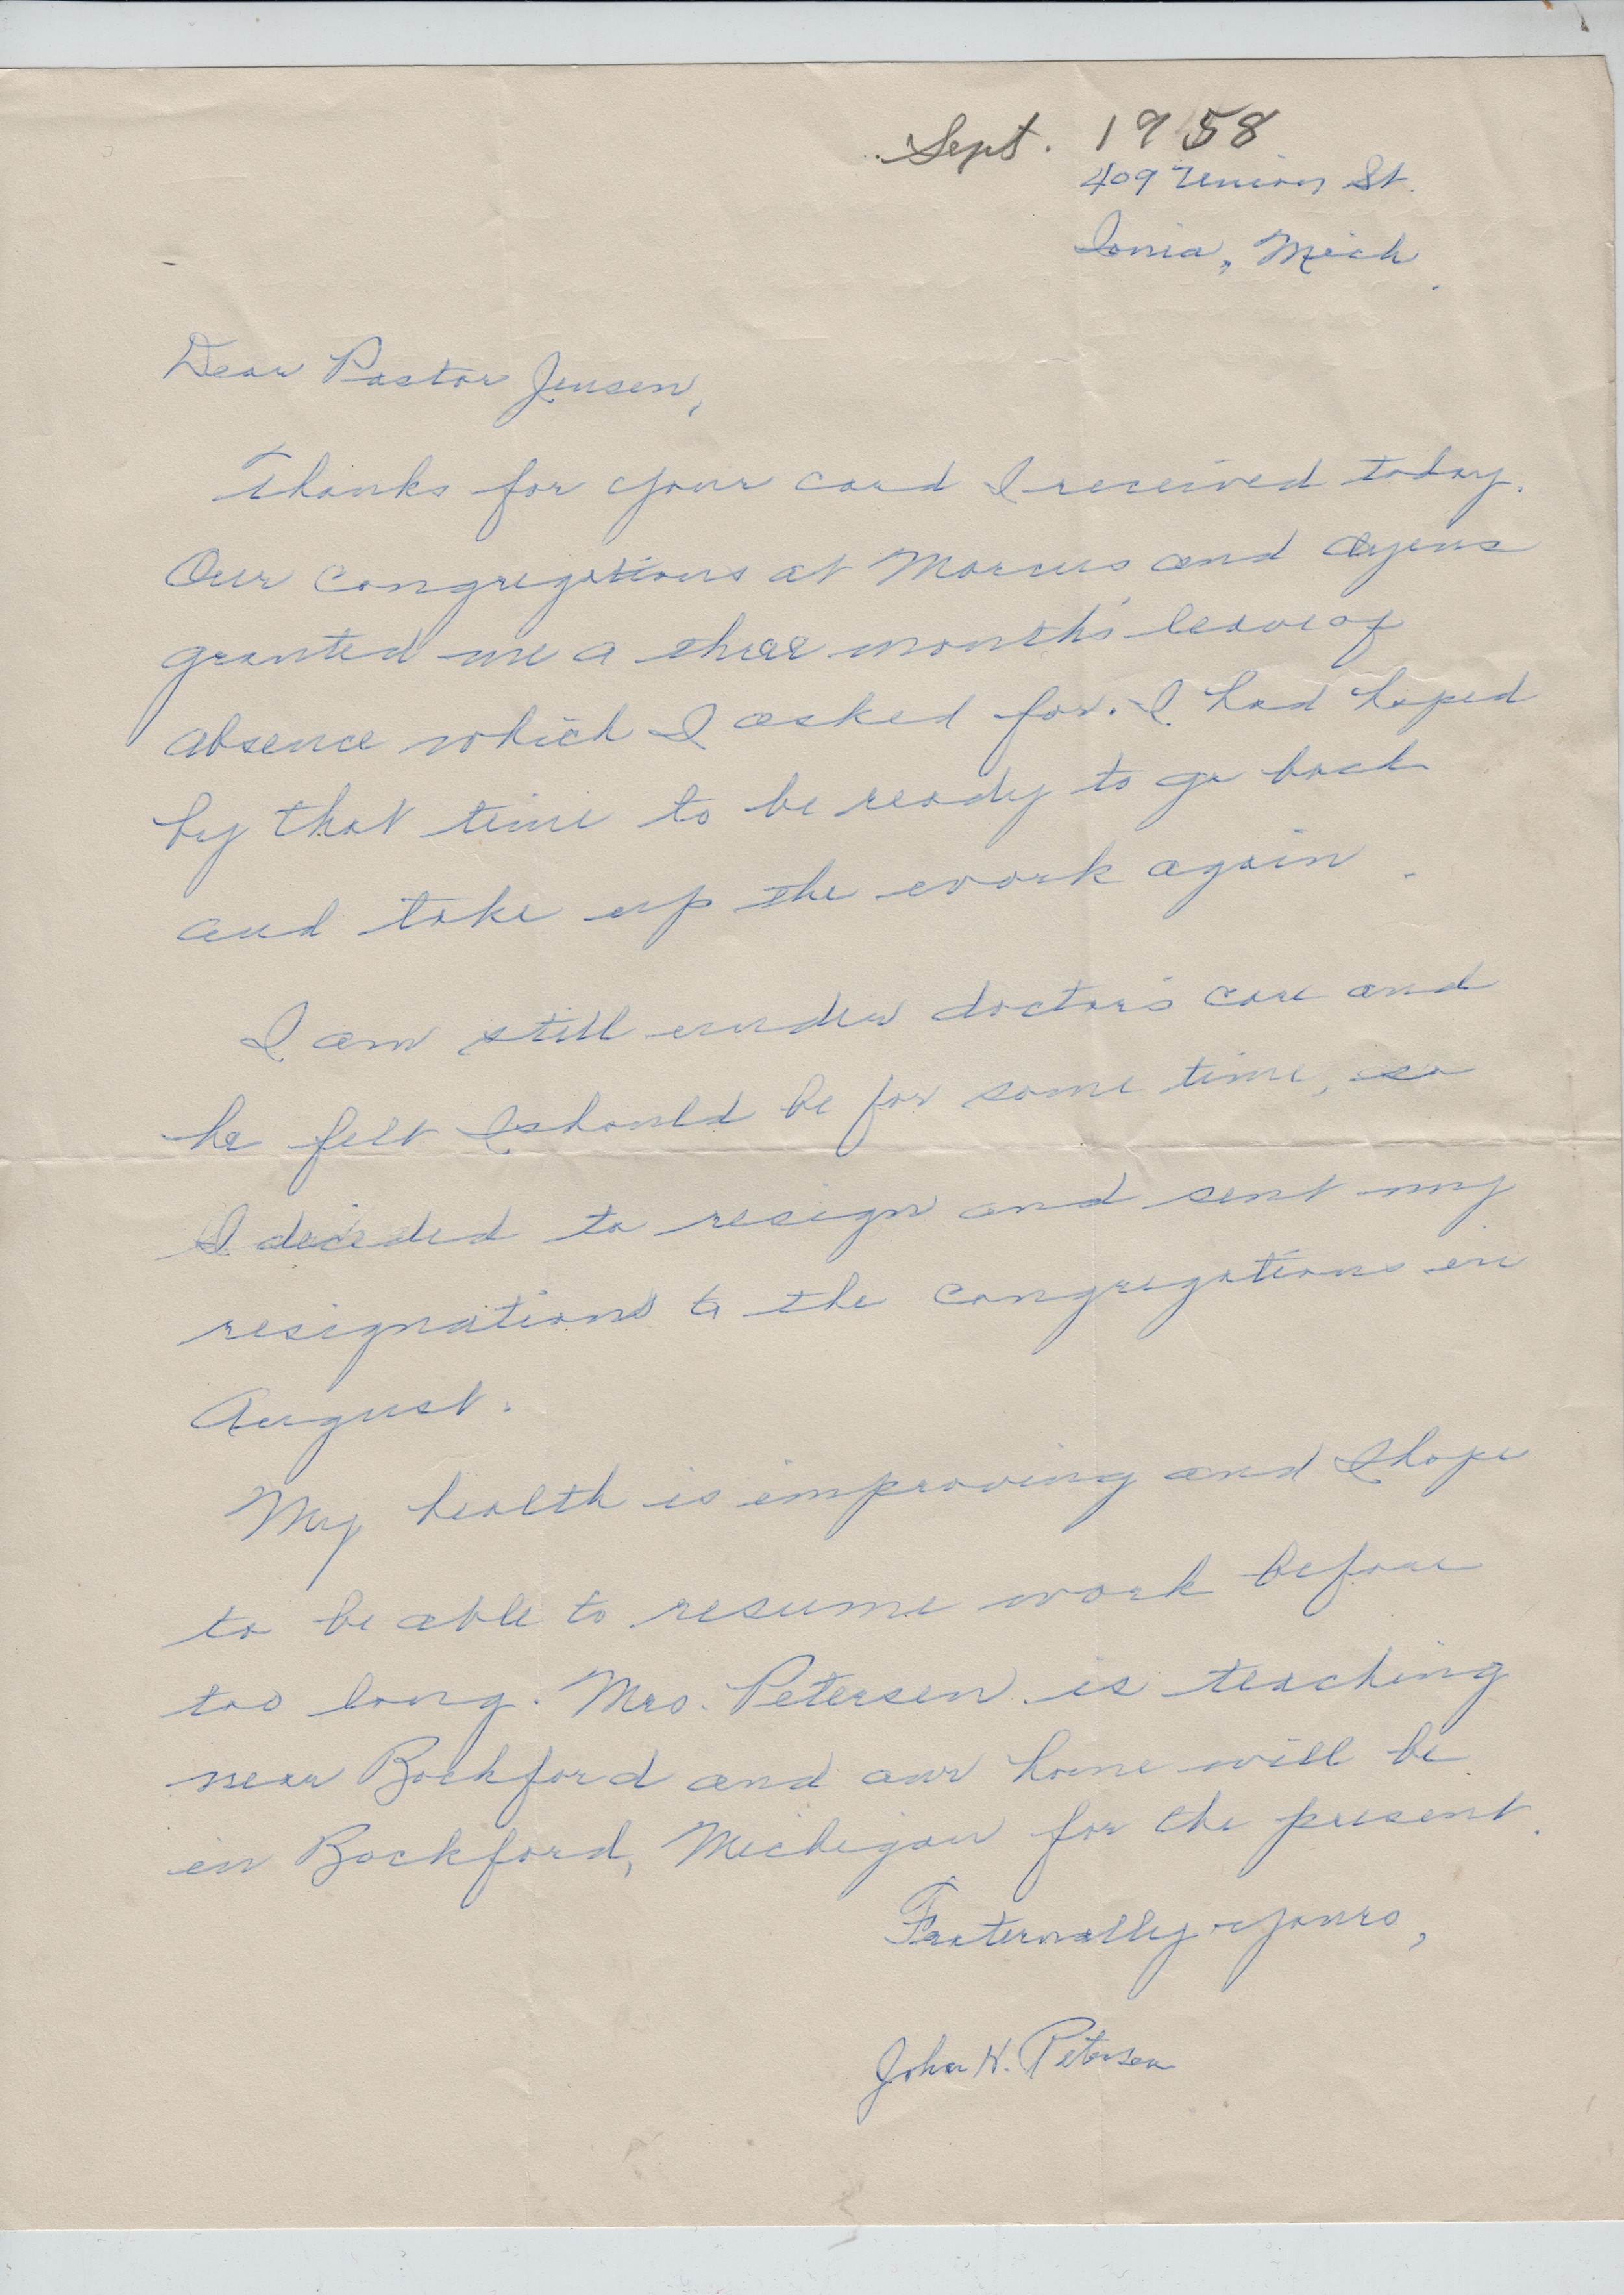 Sept. 1958
409 Union St.
Ionia, Mich.
Dear Pastor Jensen,
Thanks for your card I received today.
Our congregations at Marcus and
granted me a three months' leave of
absence which I asked for. I had hoped
by that time to be ready to go back
and take up the work again.
I am still under doctor's care and
he felt I should be for some time, so
I decided to resign and sent my
resignations to the congregations in
August.
My health is improving and I hope
to be able to resume work before
too long. Mrs. Petersen is teaching
near Rockford and our home will be
in Rockford, Michigan for the present.
Fraternally yours,
John H. Petersen